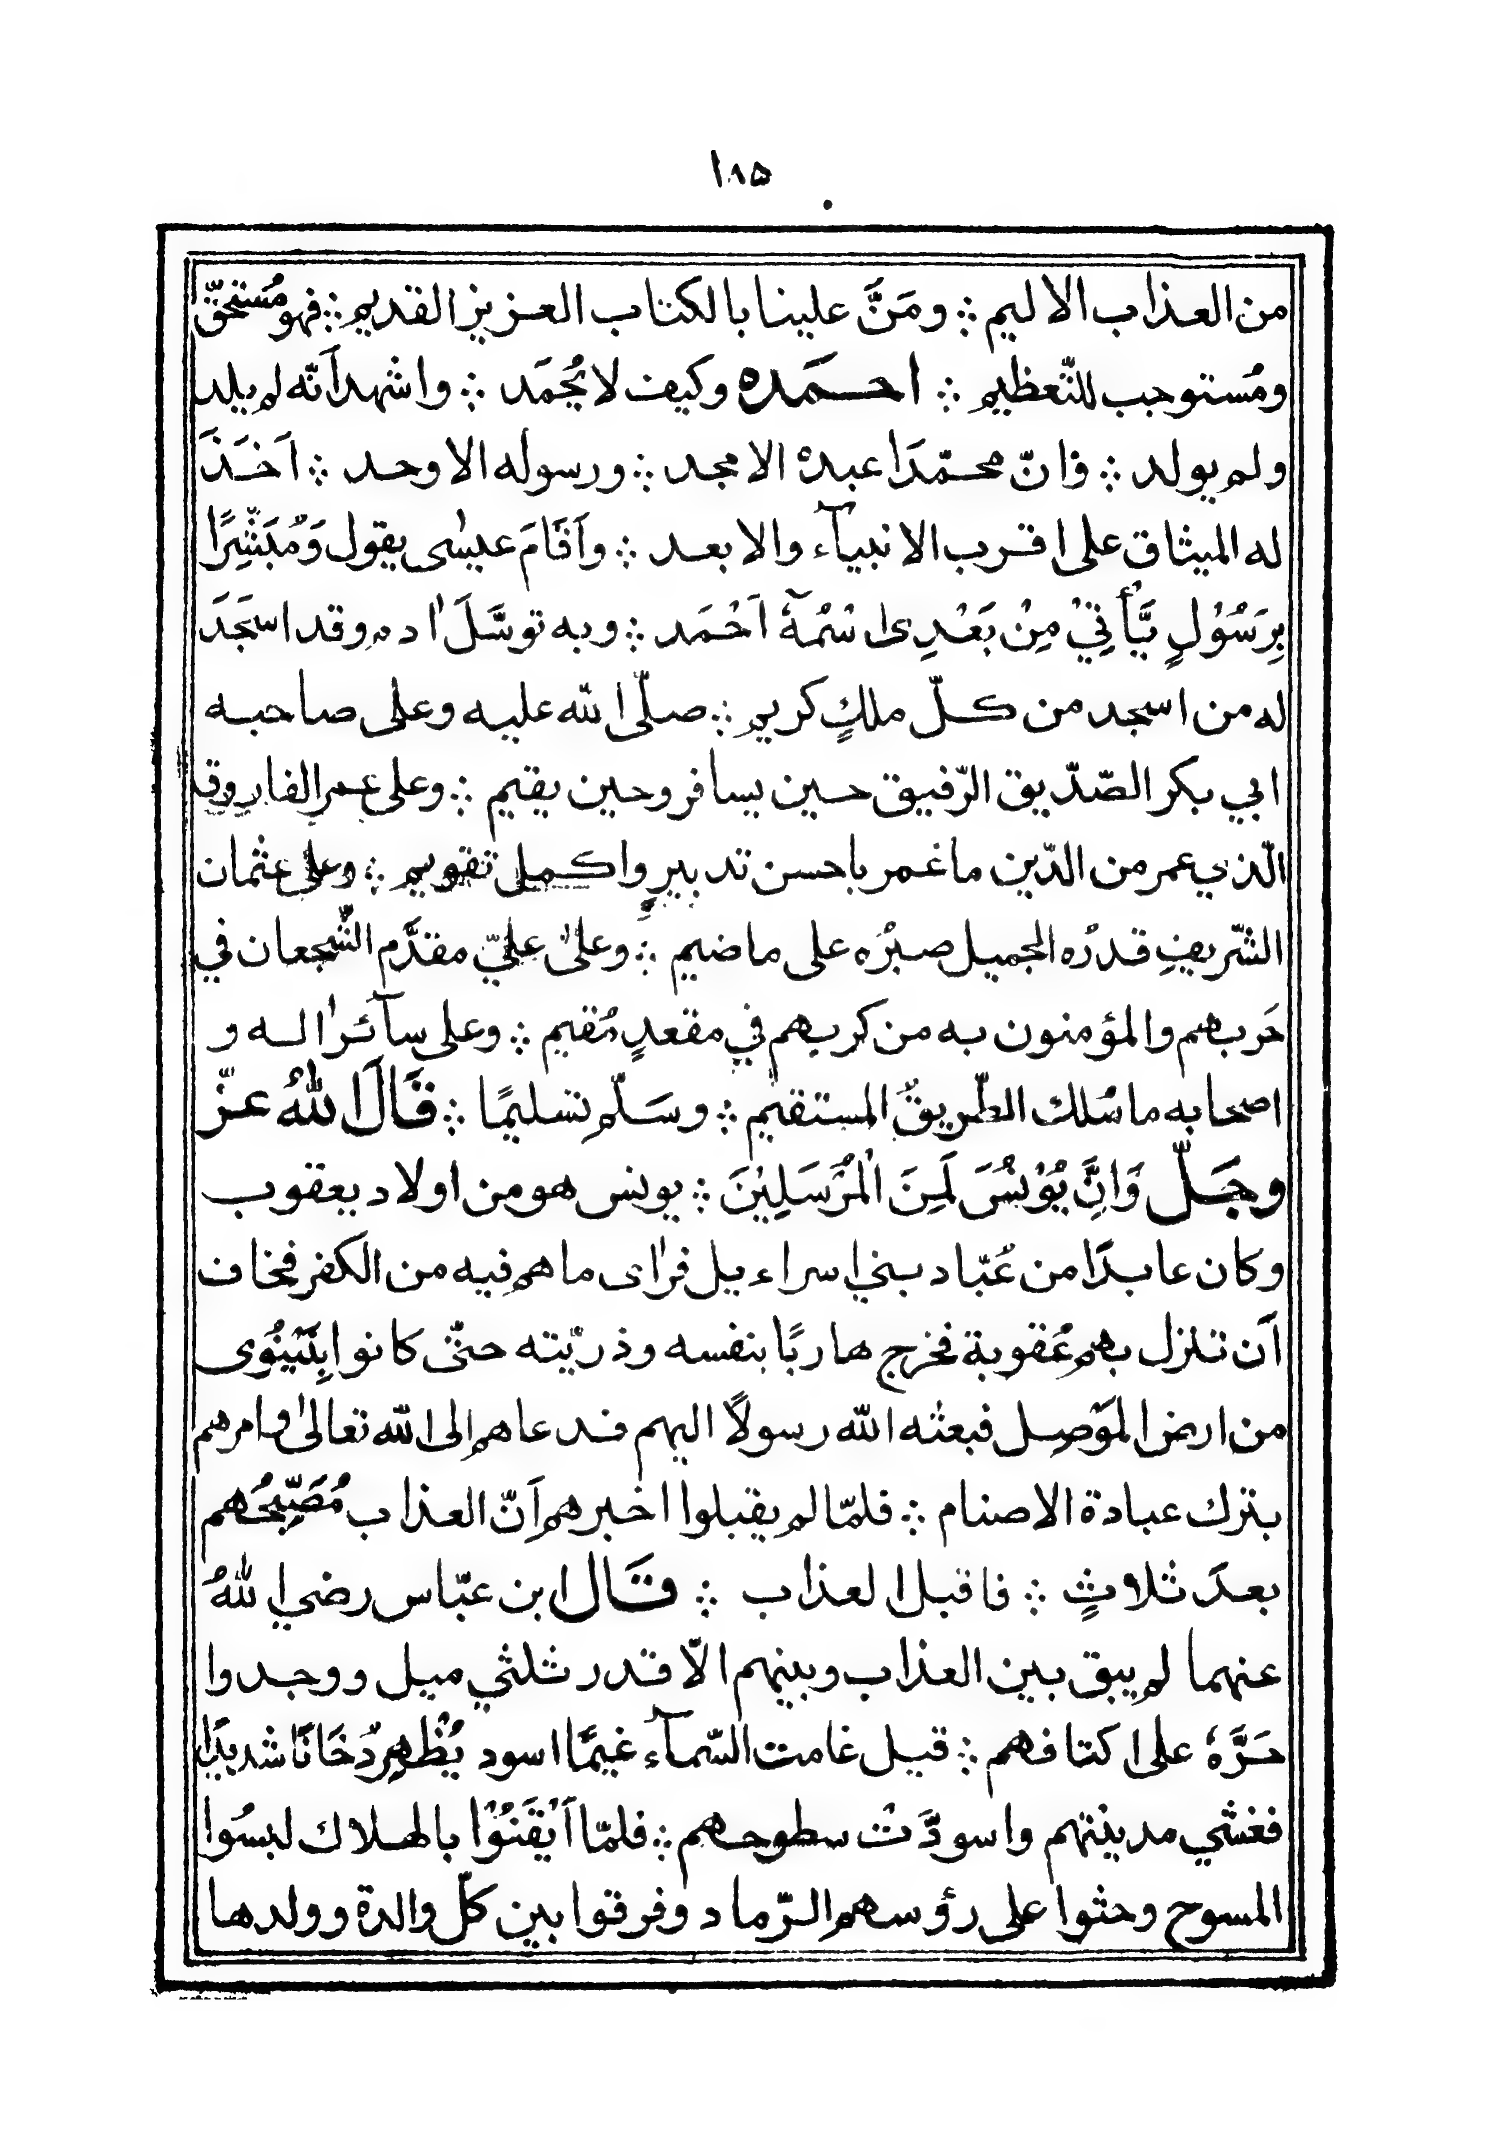 ١٨٥
من العذاب الاليم ؞ ومَنَّ علينا بالكتاب العزيز القديم ؞ فهو مُستحقّ
ومُستوجب للتّعظيم ؞ احمَده وكيف لا يُحمَد ؞ واشهد اَنّه لم يلد
ولم يولد ؞ وانّ محمّدًا عبده الامجد ؞ ورسوله الاوحد ؞ اَخَذَ
له الميثاق على اقرب الانبيآء والابعد ؞ واَقَامَ عيسٰى يقول وَمُبَشِّرًا
بِرَسُوْلٍ يَّأْتِيْ مِنْ بَعْدِى اسْمُهٗٓ اَحْمَد ؞ وبه توسَّلَ اٰدم وقد اسجَدَ
له من اسجد من كلّ ملكٍ كريم ؞ صلّى الله عليه وعلى صاحبه
ابي بكر الصّدّيق الرّفيق حين يسافر وحين يقيم ؞ وعلى عمر الفاروق
الّذي عمر من الدّين ما غمر باحسن تدبيرٍ واكمل تقويم ؞ وعلى عثمان
الشّريفِ قدرُه الجميل صبْرُه على ما ضيم ؞ وعلىٰ عليّ مقدَّم الشّجعان في
حَربهم والمؤمنون به من كربهم في مقعدٍ مُقيم ؞ وعلى سآئر اٰله و
اصحابه ما سُلك الطّريقُ المستقيم ؞ وسَلّم تسليمًا ؞ قَالَ اللهُ عزّ
وجَلّ وَاِنَّ يُوْنُسَ لَمِنَ الْمُرْسَلِيْنَ ؞ يونس هو من اولاد يعقوب
وكان عابدًا من عُبّاد بني اسراءيل فراٰى ما هم فيه من الكفر فخاف
اَن تنزل بهم عُقوبة فخرج هاربًا بنفسه وذريّته حتّى كانوا بِنَيْنَوٰى
من ارض المَوْصِل فبعثه الله رسولاً اليهم فدعاهم الى الله تعالىٰ وامرهم
بترك عبادة الاصنام ؞ فلمّا لم يقبلوا اخبرهم اَنّ العذاب مُصَبِّحُهم
بعدَ ثلاثٍ ؞ فاقبل العذاب ؞ قَال ابن عبّاس رضي اللهُ
عنهما لم يبق بين العذاب وبينهم الّا قدر ثلثي ميل ووجدوا
حَرَّهٗ على اكتافهم ؞ قيل غامت السّمآء غيمًا اسود يُظْهِر دُخَانًا شديدًا
فغشي مدينتهم واسودَّتْ سطوحهم ؞ فلمّا اَيْقَنُوْا بالهلاك لبسُوا
المسوح وحثوا على رؤسهم الرّماد وفرقوا بين كلّ والدة وولدها